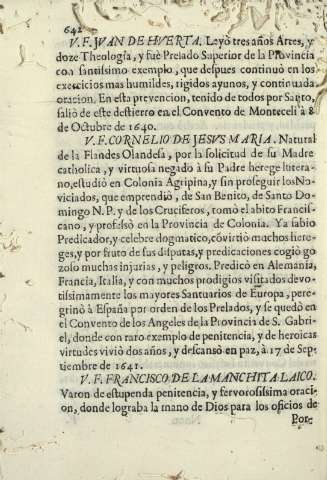 642
V. F. JVAN DE HVERTA. Leyò tres años Artes, y
doze Theologia, y fuè Prelado Superior de la Provincia
con santissimo exemplo, que despues continuò en los
exercicios mas humildes, rigidos ayunos, y continuada
oracion. En esta prevencion, tenido de todos por Santo,
saliò de este destierro en el Convento de Monteceli à 8
de Octubre de 1640.
V. F. CORNELIO DE JESVS MARIA. Natural
de la Flandes Olandesa, por la solicitud de su Madre
catholica, y virtuosa negado à su Padre herege lutera-
no, estudiò en Colonia Agripina, y sin proseguir los No-
viciados, que emprendiò, de San Benito, de Santo Do-
mingo N. P. y de los Cruciferos, tomò el abito Francis-
cano, y professò en la Provincia de Colonia. Ya sabio
Predicador, y celebre dogmatico, cõvirtiò muchos here-
ges, y por fruto de sus disputas, y predicaciones cogiò go
zoso muchas injurias, y peligros. Predicò en Alemania,
Francia, Italia, y con muchos prodigios visitados devo-
tissimamente los mayores Santuarios de Europa, pere-
grinò à España por orden de los Prelados, y se quedò en
el Convento de los Angeles de la Provincia de S. Gabri-
el, donde con raro exemplo de penitencia, y de heroicas
virtudes viviò dos años, y descansò en paz, à 17 de Sep-
tiembre de 1641.
V. F. FRANCISCO DE LA MANCHITA LAICO.
Varon de estupenda penitencia, y fervorosissima oraci-
on, donde lograba la mano de Dios para los oficios de
Por-